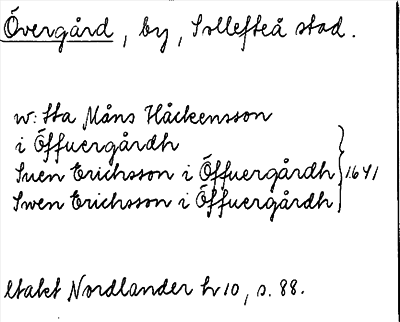 Övergård, by, Sollefteå stad.
w: Sta Måns Håckensson
i Öffuergårdh
Suen Erichsson i Öffuergårdh } 1641
Swen Erichsson i Öffuergårdh
Nordlander hr 10, s. 88.